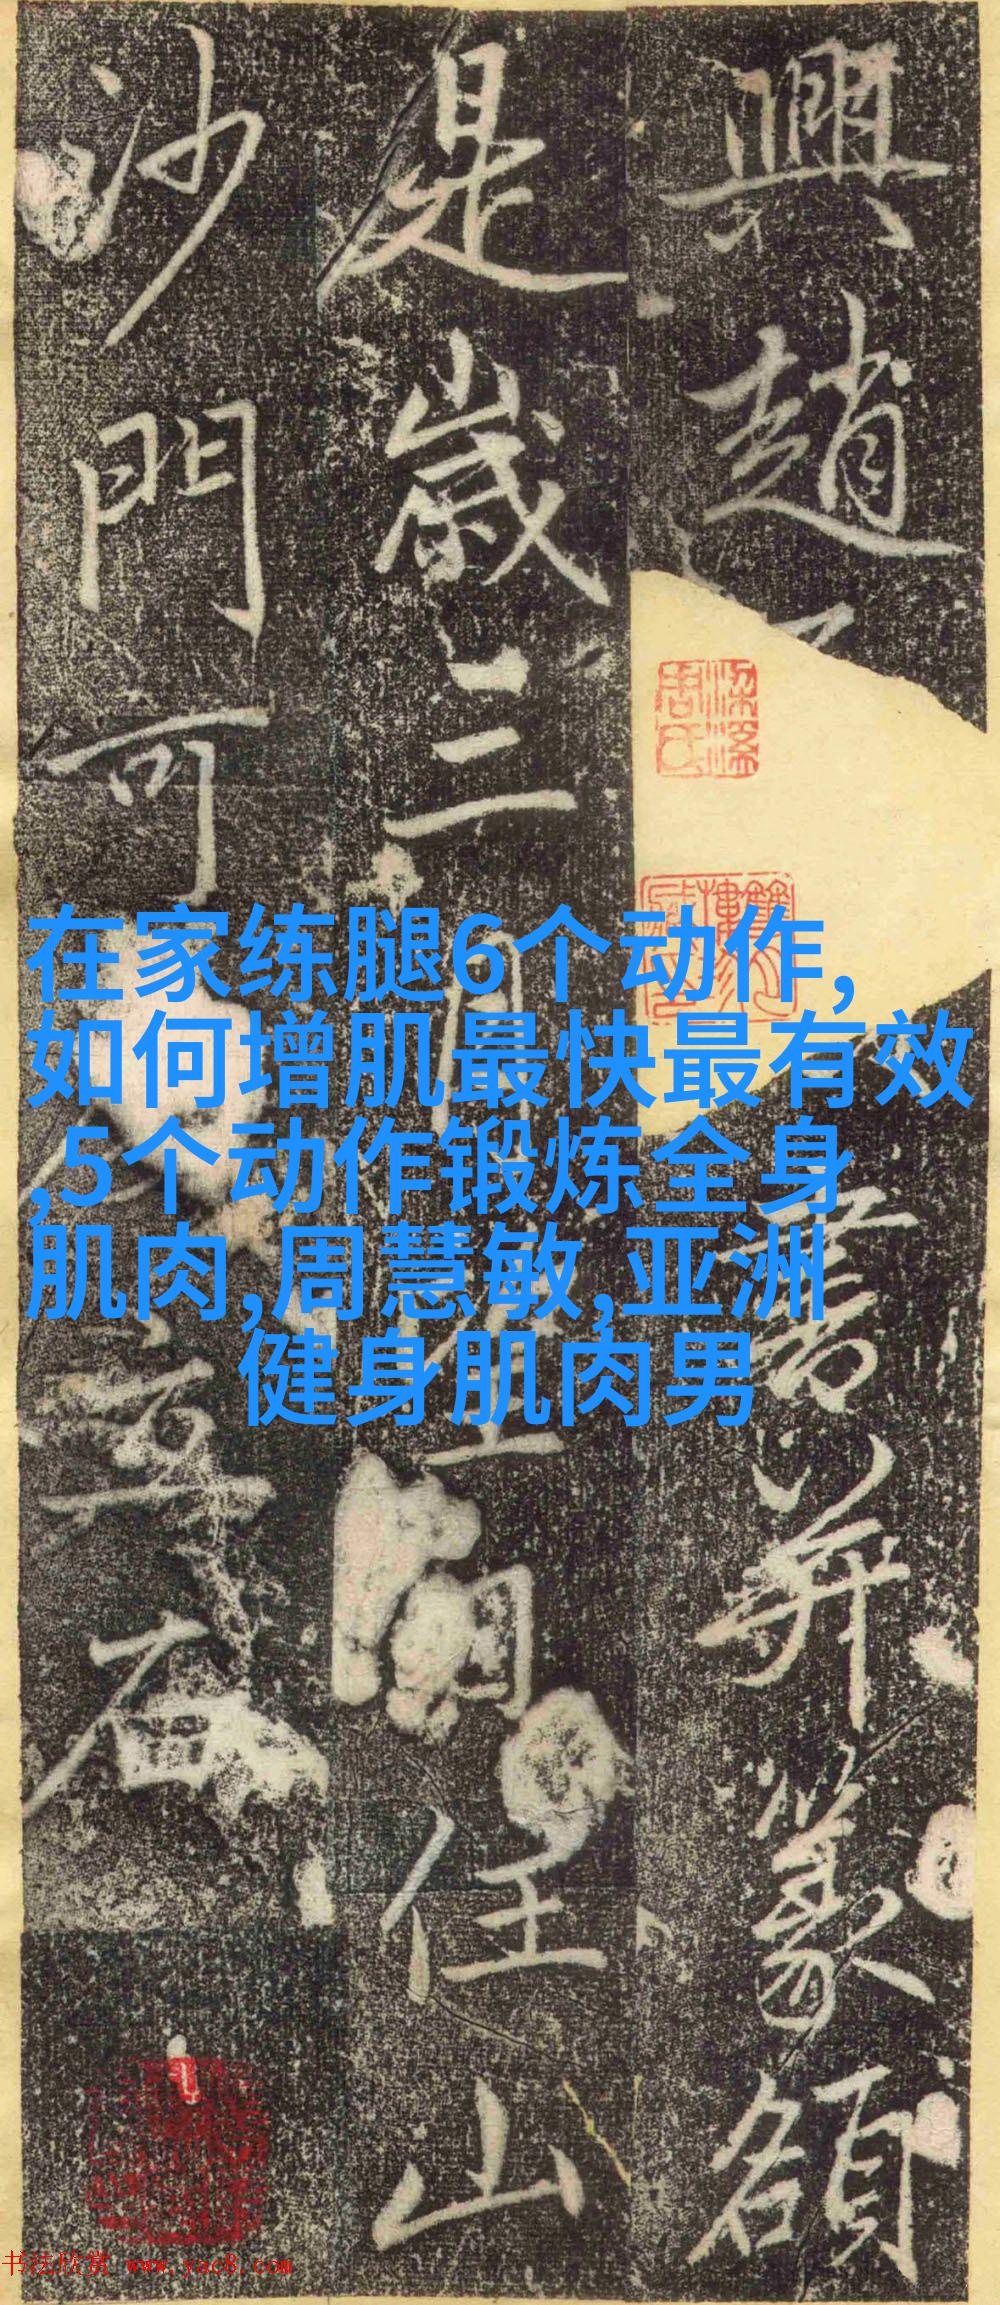 興趙
書并篆額
是歲二月
住山
沙門可
梁溪周氏
在家练腿6个动作,
如何增肌最快最有效
,5个动作锻炼全身
肌肉,周慧敏,亚洲
健身肌肉男
书法欣赏 www.yac8.com